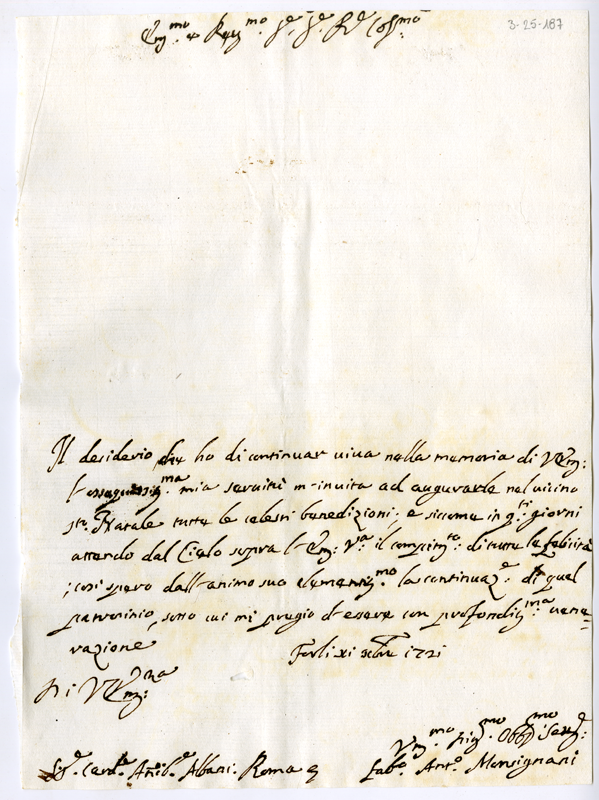 3-25-187
Em:mo e Re:mo Sr. Sr. Pd. Col:mo
Il desiderio, che ho di continuar viva nella memoria di VEm:
l'ossequiosis:ma mia servitù m'invita ad augurarle nel vicino
sto: Natale tutte le celesti benedizioni; e siccome in q:ti giorni
attendo dal Cielo sopra l'Em: Va il compim:to di tutte le felicità
; così spero dall'animo suo clementis:mo la continuaz:e di quel
patrocinio, sotto cui mi pregio d'essere con profondis:ma vene=
razione
Forlì xi xbre 1721
Di VEm:za
Um:mo Div:mo Obb:mo Ser:
Sr. Card:le Anib:e Albani. Roma
Fab:o Ant:o Monsignani